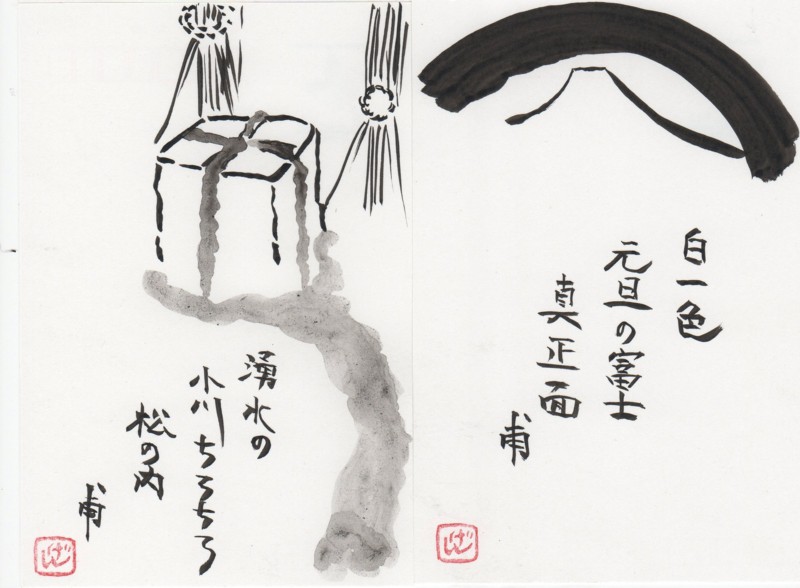 白一色
元旦の富士
真正面
甫
湧水の
小川ちろちろ
松の内
甫